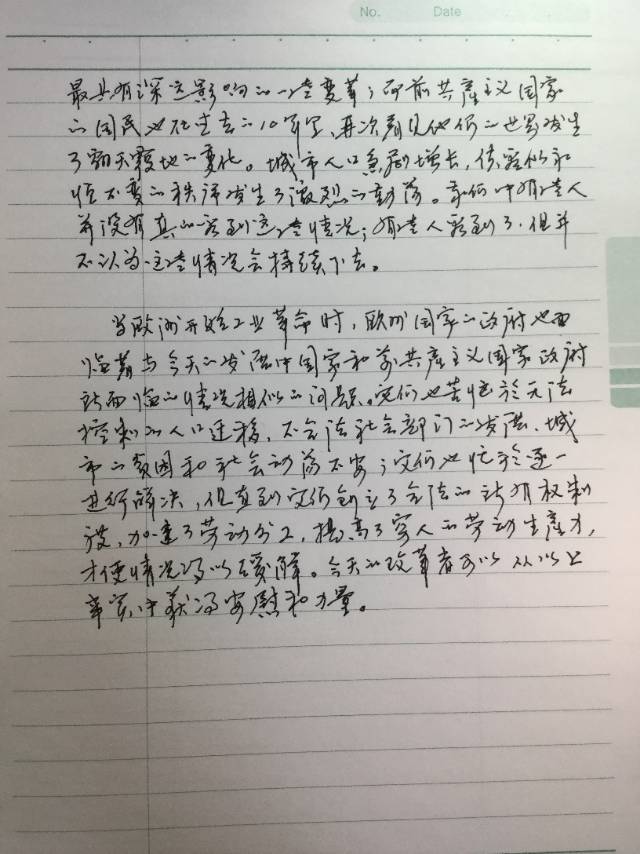 No. Date
最具有深远影响的一些变革；而前共产主义国家
的国民也在过去的10年里，再次看见他们的世界发生
了翻天覆地的变化。城市人口急剧增长，
恒不变的秩序发生了激烈的动荡。我们中有些人
并没有真的看到这些情况；有些人看到了，但并
不认为这些情况会持续下去。
当欧洲开始工业革命时，欧洲国家的政府也面
临着与今天的发展中国家和前共产主义国家政府
所面临的情况相似的问题。它们也苦恼於无法
控制的人口迁移，不合法社会部门的发展、城
市的贫困和社会动荡不安；它们也忙於逐一
进行解决，但直到它们创立了合法的所有权制
度，加速了劳动分工，提高了穷人的劳动生产力，
才使情况得以缓解。今天的改革者可以从以上
事实中获得安慰和力量。